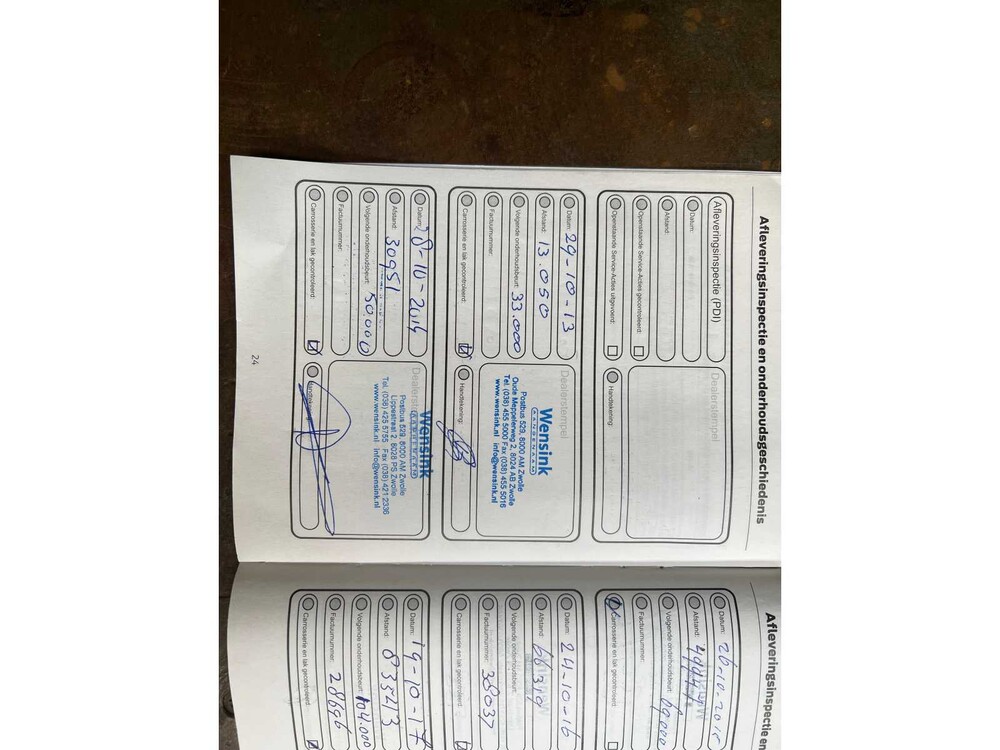 Afleveringsinspectie en onderhoudsgeschiedenis
Afleveringsinspectie (PDI)
Datum:
Afstand:
Openstaande Service-Acties gecontroleerd:
Openstaande Service-Acties uitgevoerd:
Dealerstempel
Handtekening:
Datum: 29-10-13
Afstand: 13.050
Volgende onderhoudsbeurt: 33.000
Factuurnummer:
Carrosserie en lak gecontroleerd:
Dealerstempel
Wensink
Postbus 529, 8000 AM Zwolle
Oude Meppelerweg 2, 8024 AB Zwolle
Tel. (038) 455 5000 Fax (038) 455 5016
www.wensink.nl info@wensink.nl
Handtekening:
Datum: 28-10-2014
Afstand: 30951
Volgende onderhoudsbeurt: 50.000
Factuurnummer:
Carrosserie en lak gecontroleerd:
Wensink
Postbus 529, 8000 AM Zwolle
Lippestraat 2, 8028 PS Zwolle
Tel. (038) 425 5755 Fax (038) 421 2336
www.wensink.nl info@wensink.nl
Handtekening:
24
Afleveringsinspectie en
Datum: 26-10-2015
Afstand:
Volgende onderhoudsbeurt:
Factuurnummer:
Carrosserie en lak gecontroleerd:
Datum: 24-10-16
Afstand: 66319
Volgende onderhoudsbeurt:
Factuurnummer: 38037
Carrosserie en lak gecontroleerd:
Datum: 19-10-17
Afstand: 83543
Volgende onderhoudsbeurt: 104.000
Factuurnummer: 28696
Carrosserie en lak gecontroleerd: